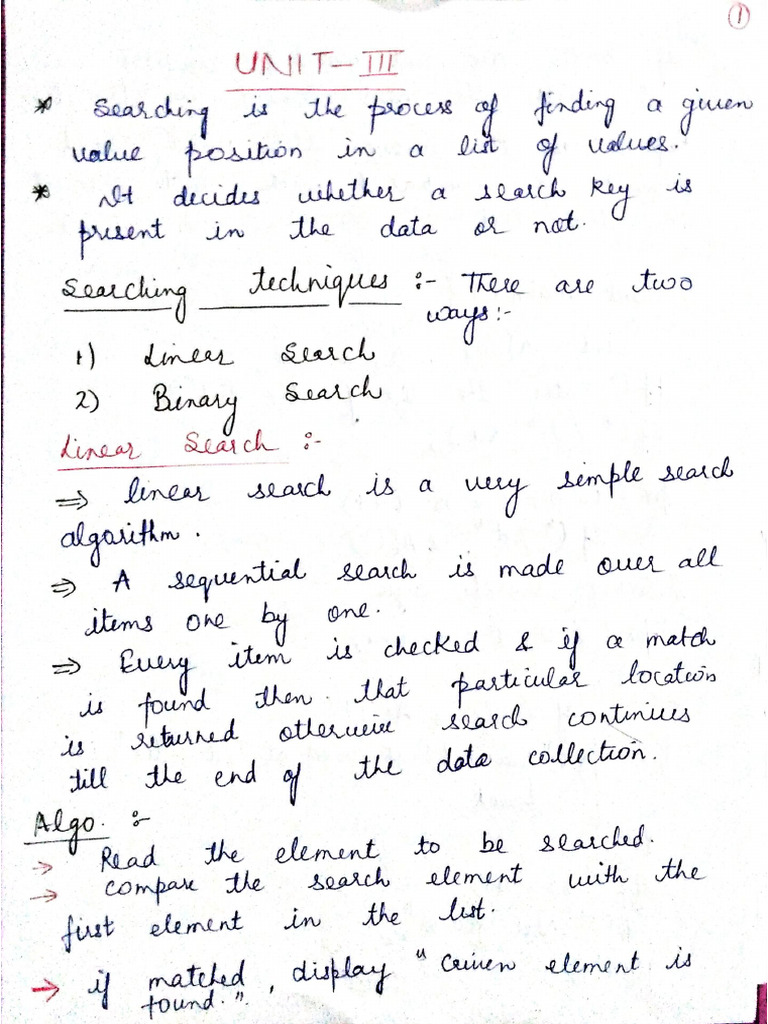 1
UNIT-III
* Searching is the process of finding a given
value position in a list of values.
* It decides whether a search key is
present in the data or not.
Searching techniques :- There are two
ways:-
1) Linear Search
2) Binary Search
Linear Search :-
⇒ linear search is a very simple search
algorithm.
⇒ A sequential search is made over all
items one by one.
⇒ Every item is checked & if a match
is found then that particular location
is returned otherwise search continues
till the end of the data collection.
Algo. :-
→ Read the element to be searched.
→ compare the search element with the
first element in the list.
→ if matched, display "Given element is
found.".